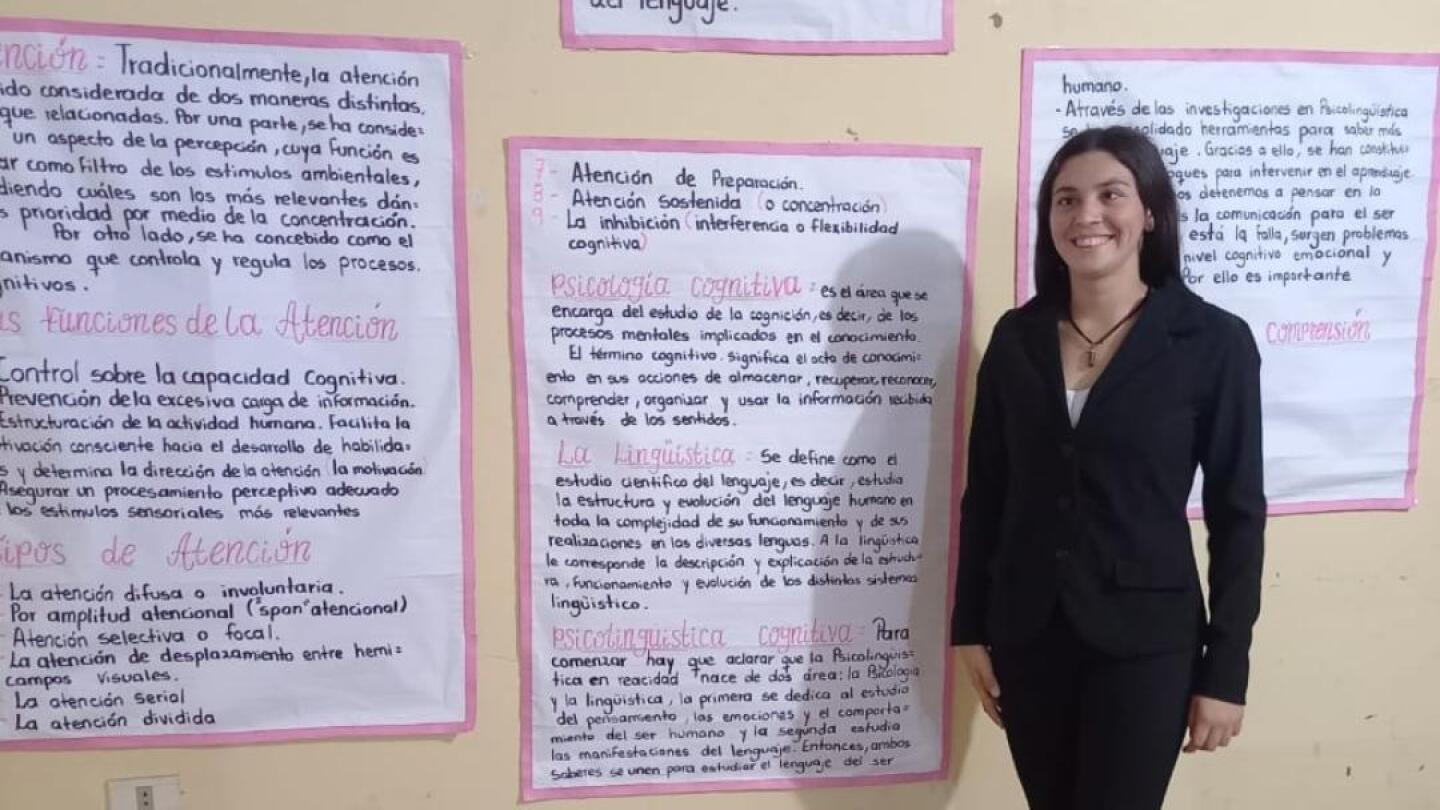 del lenguaje.
ención: Tradicionalmente, la atención
ido considerada de dos maneras distintas,
que relacionadas. Por una parte, se ha conside=
un aspecto de la percepción, cuya función es
ar como filtro de los estimulos ambientales,
diendo cuáles son los más relevantes dán=
s prioridad por medio de la concentración.
Por otro lado, se ha concebido como el
anismo que controla y regula los procesos.
gnitivos.
as Funciones de la Atención
Control sobre la capacidad Cognitiva.
Prevención de la excesiva carga de información.
Estructuración de la actividad humana. Facilita la
tivación consciente hacia el desarrollo de habilida=
s y determina la dirección de la atención (la motivación)
Asegurar un procesamiento perceptivo adecuado
los estimulos sensoriales más relevantes
Tipos de Atención
La atención difusa o involuntaria.
Por amplitud atencional ("span" atencional)
Atención selectiva o focal.
La atención de desplazamiento entre hemi=
campos visuales.
La atención serial
La atención dividida
7- Atención de Preparación.
8- Atención Sostenida (o concentración)
9- La inhibición (interferencia o flexibilidad
cognitiva)
Psicología cognitiva: es el área que se
encarga del estudio de la cognición, es decir, de los
procesos mentales implicados en el conocimiento.
El término cognitivo. significa el acto de conocimi-
ento en sus acciones de almacenar, recuperar, reconocer,
comprender, organizar y usar la información recibida
a través de los sentidos.
La Lingüistica: Se define como el
estudio cientifico del lenguaje, es decir, estudia
la estructura y evolución del lenguaje humano en
toda la complejidad de su funcionamiento y de sus
realizaciones en las diversas lenguas. A la lingüstica
le corresponde la descripción y explicación de la estruch-
ra, funcionamiento y evolución de los distintos sistemas
lingüistico.
psicolingüistica cognitiva: Para
comenzar hay que aclarar que la Psicolingüis=
tica en reacidad nace de dos área: la Psicologia
y la lingüistica, la primera se dedica al estudio
del pensamiento, las emociones y el comporta=
miento del ser humano y la segunda estudia
las manifestaciones del lenguaje. Entonces, ambos
saberes se unen para estudiar el lenguaje del ser
humano.
- Através de las investigaciones en Psicolingüistica
se olidado herramientas para saber más
uaje. Gracias a ello, se han constitui-
oques para intervenir en el aprendizaje.
os detenemos a pensar en la
s la comunicación para el ser
está la falla, surgen problemas
nivel cognitivo emocional y
Por ello es importante
comprensión